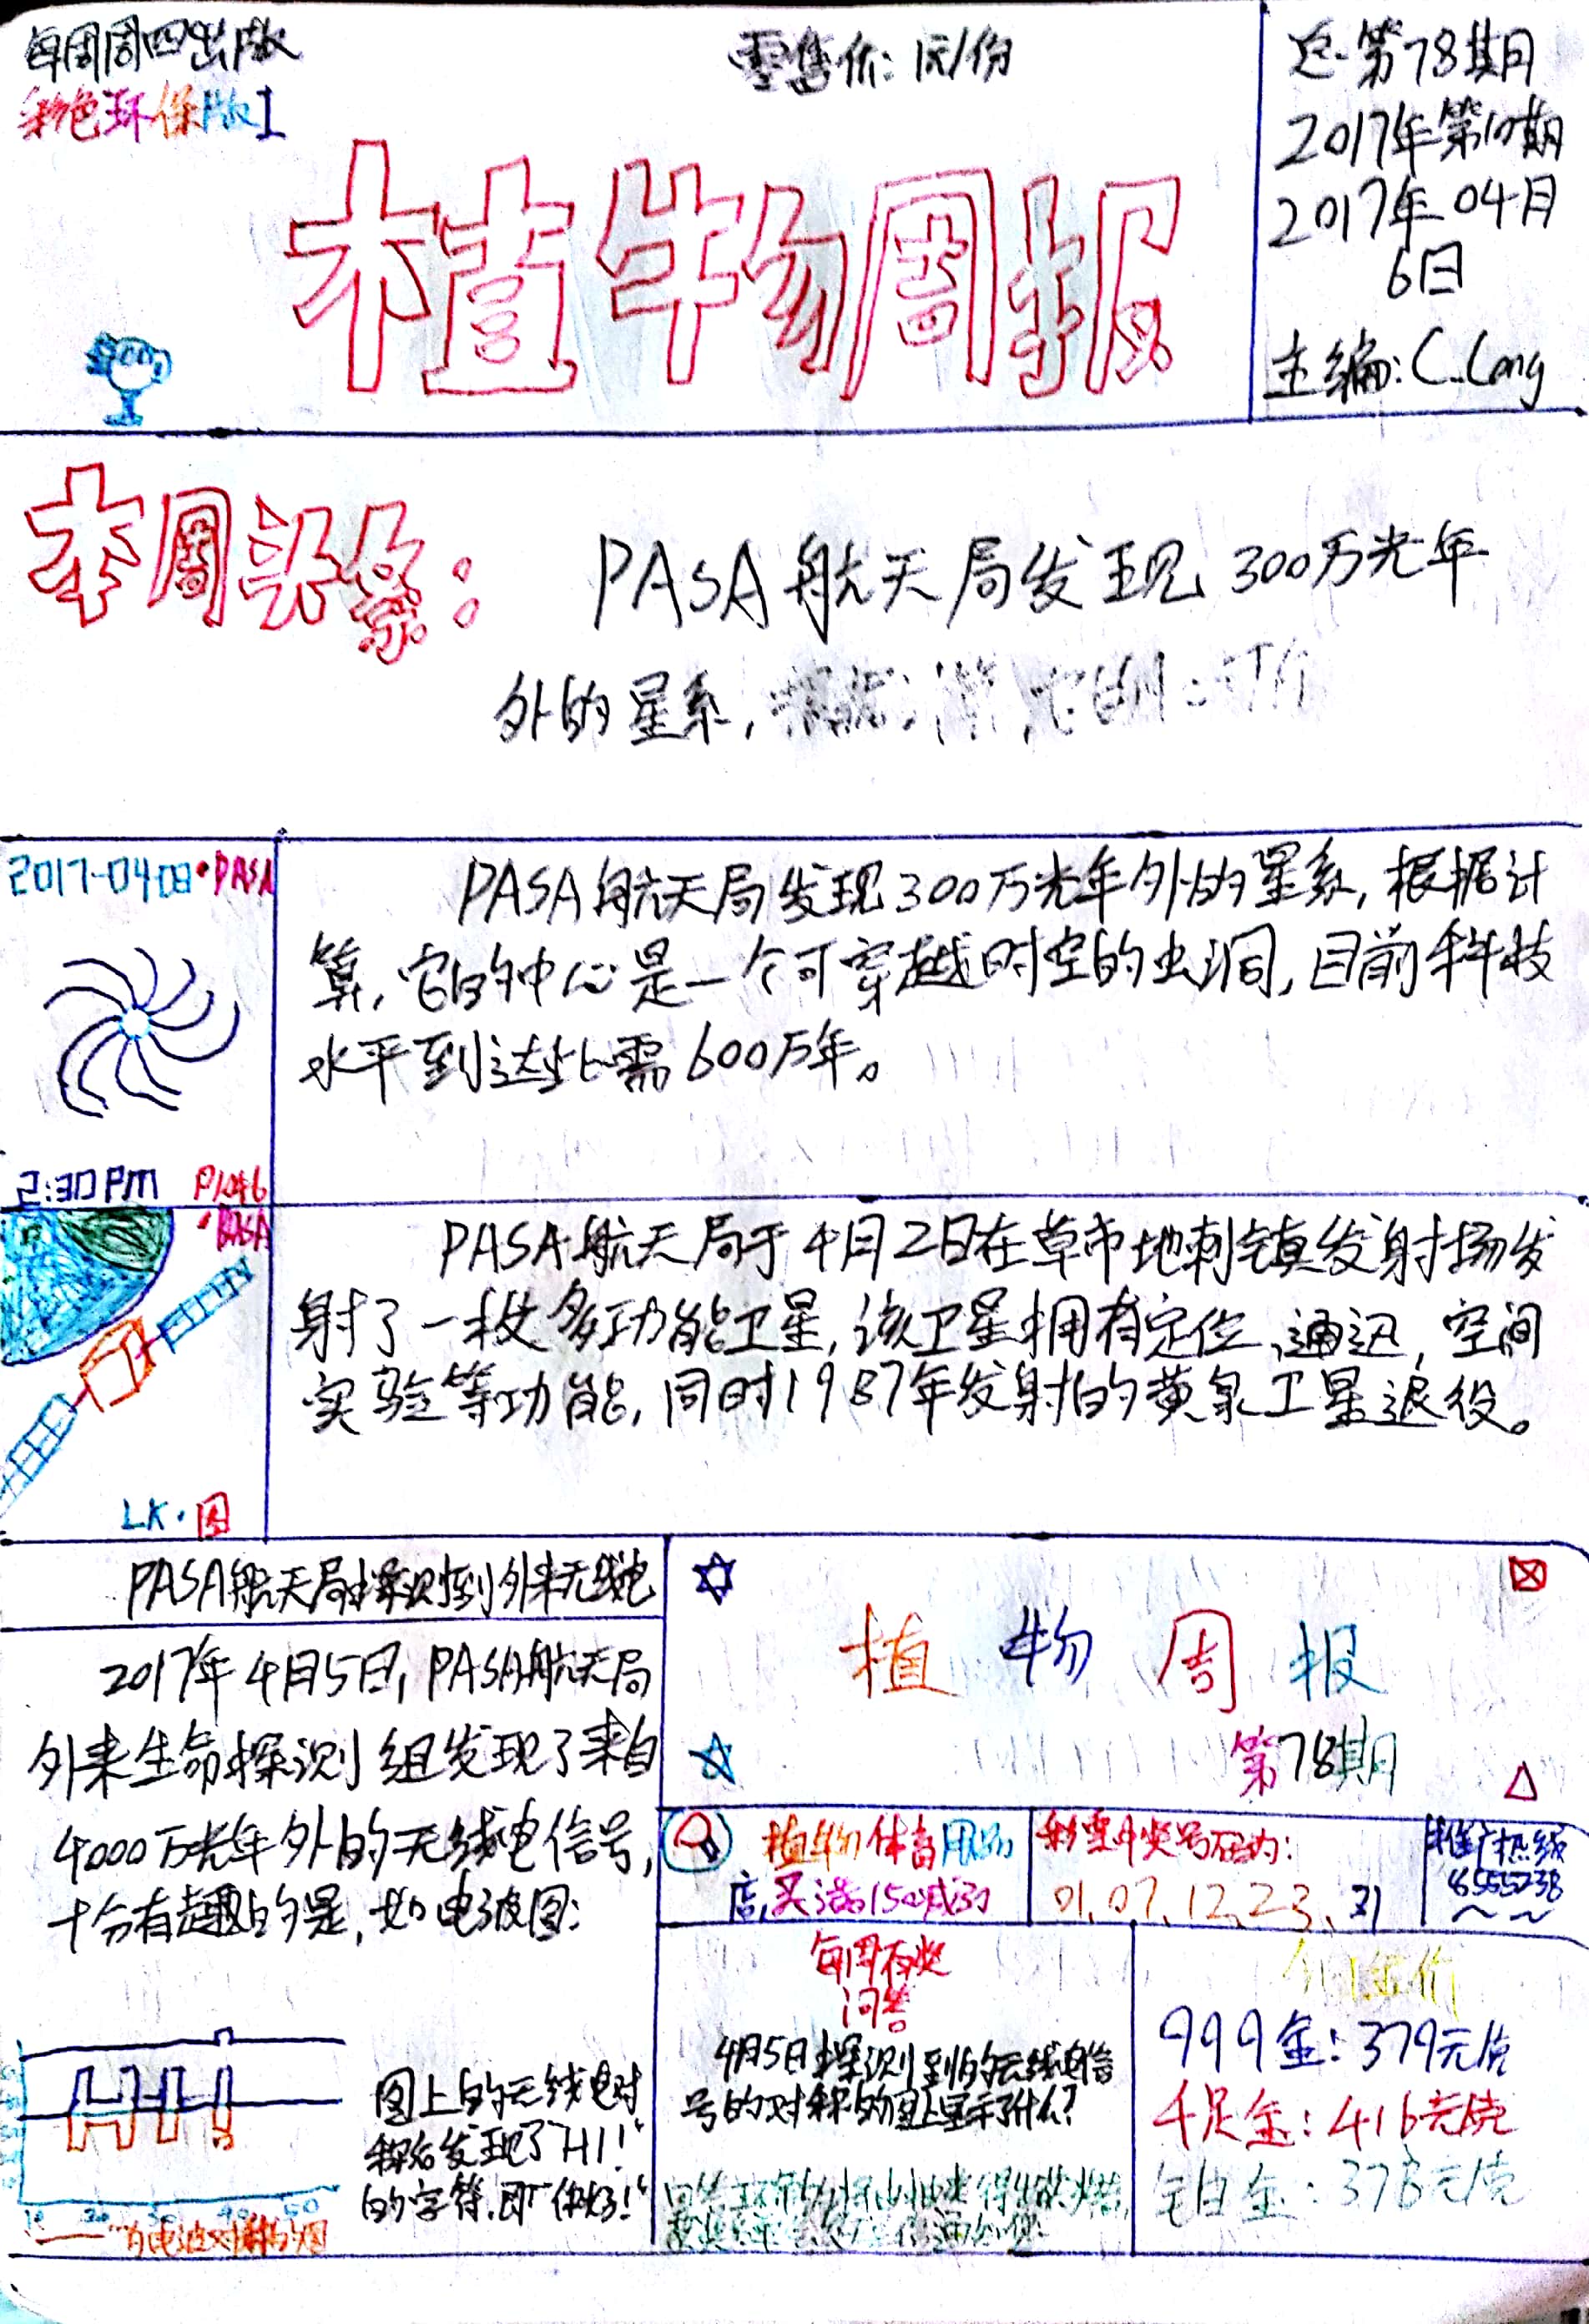 每周周四出版
彩色环保版I
零售价:1元/份
总第78期
2017年第10期
2017年04月
6日
主编:C.Long
植物周报
本周头条:
PASA航天局发现300万光年
外的星系,
2017-04-03·PASA
2:30PM
PASA航天局发现300万光年外的星系,根据计
算,它的中心是一个可穿越时空的虫洞,目前科技
水平到达此需600万年。
·PASA
LK·图
PASA航天局于4月2日在草市地刺镇发射场发
射了一枚多功能卫星,该卫星拥有定位、通迅,空间
实验等功能,同时1987年发射的黄泉卫星退役。
PASA航天局探测到外来无线电
2017年4月5日,PASA航天局
外来生命探测组发现了来自
4000万光年外的无线电信号,
十分有趣的是,如电波图:
图上的无线电对
称后发现了"HI!"
的字符.即"你好!"
10 20 30 40 50
为电波对称的图
植物周报
第78期
植物体育用品
店,买满150减30
彩票中奖号码为:
01、07、12、23、31
推广热线
8555238
每周有奖
问答
4月5日探测到的无线电信
号的对称的图上显示了什么?
今日金价
999金:379元/克
千足金:416元/克
铂金:378元/克